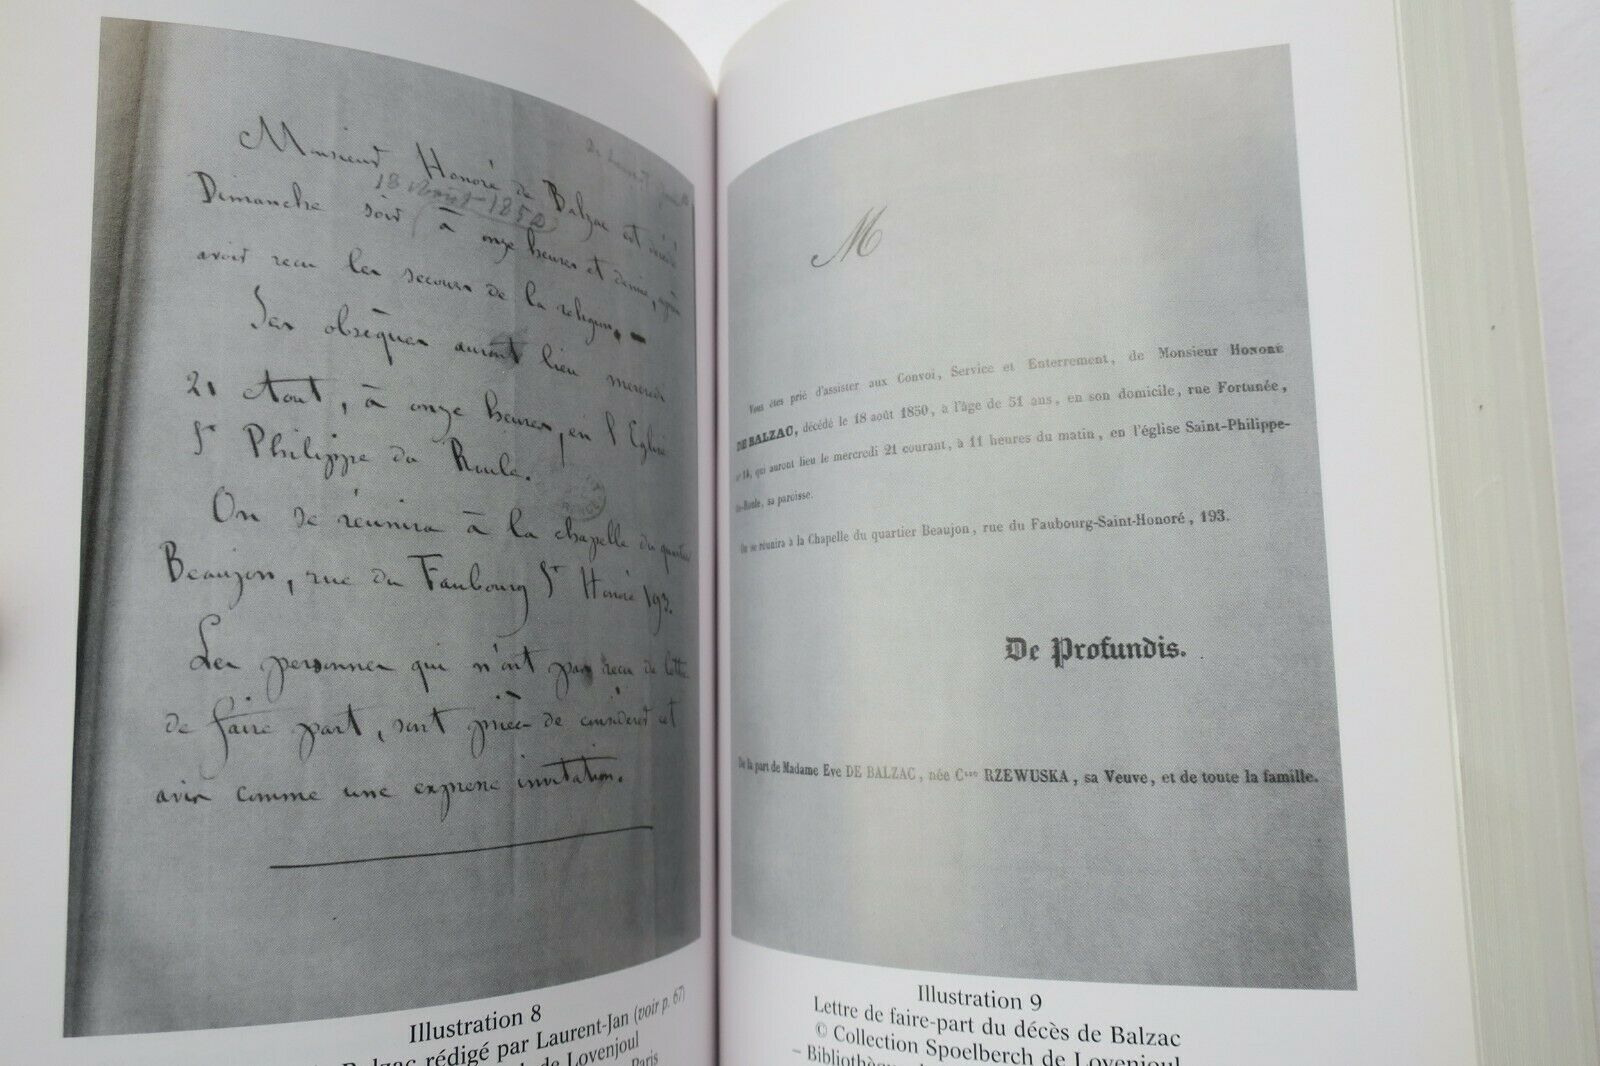 Monsieur Honoré de Balzac est décédé
18 Août 1850
Dimanche soir à onze heures et demie, après
avoir recu les secours de la religion. –
Ses obsèques auront lieu mercredi
21 Aout, à onze heures, en l'Eglise
St Philippe du Roule.
On se réunira à la chapelle du quartier
Beaujon, rue du Faubourg St Honoré 193.
Les personnes qui n'ont pas recu de lettre
de faire part, sont priées de considérer cet
avis comme une expresse invitation.
Illustration 8
Balzac rédigé par Laurent-Jan (voir p. 67)
de Lovenjoul
Paris
M
Vous êtes prié d'assister aux Convoi, Service et Enterrement, de Monsieur HONORÉ
DE BALZAC, décédé le 18 août 1850, à l'âge de 51 ans, en son domicile, rue Fortunée,
nº 14, qui auront lieu le mercredi 21 courant, à 11 heures du matin, en l'église Saint-Philippe-
du-Roule, sa paroisse.
On se réunira à la Chapelle du quartier Beaujon, rue du Faubourg-Saint-Honoré, 193.
De Profundis.
De la part de Madame Eve DE BALZAC, née Csse RZEWUSKA, sa Veuve, et de toute la famille.
Illustration 9
Lettre de faire-part du décès de Balzac
© Collection Spoelberch de Lovenjoul
– Bibliothèque